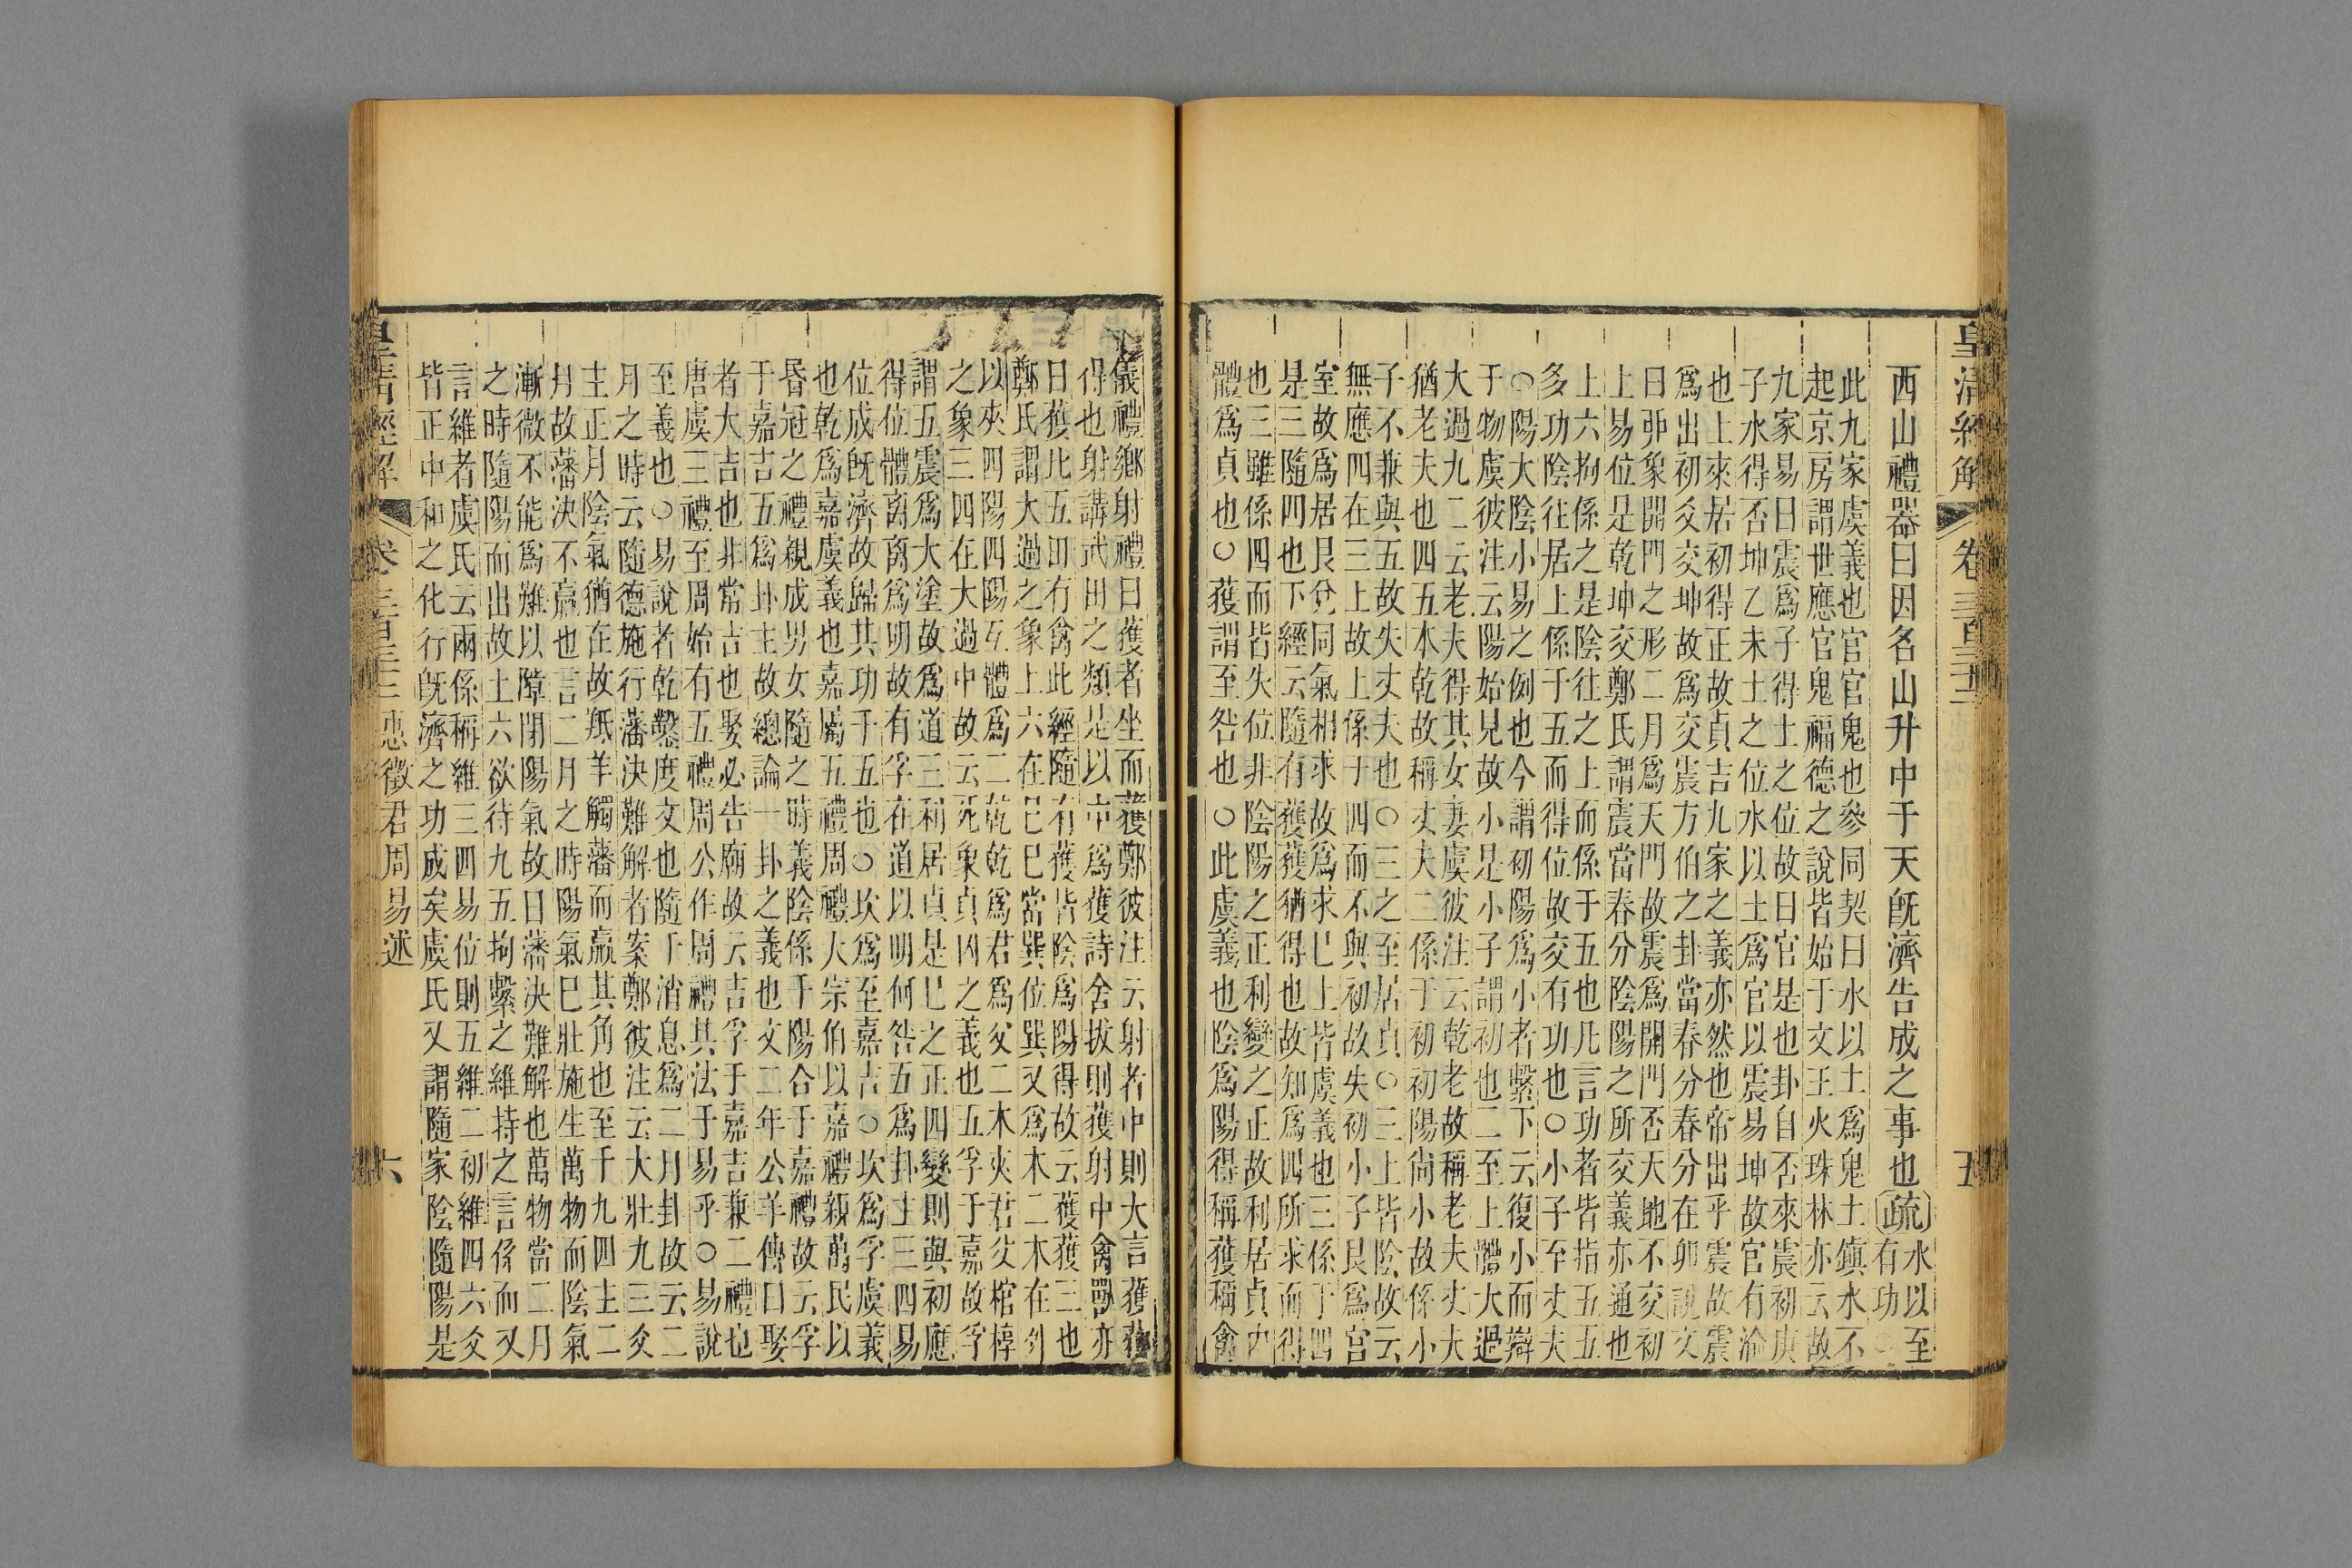 皇清經解 卷三百三十二 五
西山禮器曰因名山升中于天既濟告成之事也疏
水以至
有功○
此九家虞義也官官鬼也參同契曰水以土為鬼土鎮水不
起京房謂世應官鬼福德之說皆始于文王火珠林亦云故
九家易曰震為子得土之位故曰官是也卦自否來震初庚
子水得否坤乙未土之位水以土為官以震易坤故官有渝
也上來居初得正故貞吉九家之義亦然也帝出乎震故震
為出初爻交坤故為交震方伯之卦當春分春分在卯說文
曰戼象開門之形二月為天門故震為開門否天地不交初
上易位是乾坤交鄭氏謂震當春分陰陽之所交義亦通也
上六拘係之是陰往之上而係于五也凡言功者皆指五五
多功陰往居上係于五而得位故交有功也○小子至丈夫
○陽大陰小易之例也今謂初陽為小者繫下云復小而辯
于物虞彼注云陽始見故小是小子謂初也二至上體大過
大過九二云老夫得其女妻虞彼注云乾老故稱老夫丈夫
猶老夫也四五本乾故稱丈夫二係于初初陽尚小故係小
子不兼與五故失丈夫也○三之至居貞○三上皆陰故云
無應四在三上故上係于四而不與初故失初小子艮為宮
室故為居艮兌同氣相求故為求巳上皆虞義也三係于四
是三隨四也下經云隨有獲獲猶得也故知為四所求而得
也三雖係四而皆失位非陰陽之正利變之正故利居貞內
體為貞也○獲謂至咎也○此虞義也陰為陽得稱獲稱禽
儀禮鄉射禮曰獲者坐而獲鄭彼注云射者中則大言獲獲
得也射講武田之類是以中為獲詩舍拔則獲射中禽獸亦
曰獲比五田有禽此經隨有獲皆陰為陽得故云獲獲三也
鄭氏謂大過之象上六在巳巳當巽位巽又為木二木在外
以夾四陽四陽互體為二乾乾為君為父二木夾君父棺椁
之象三四在大過中故云死象貞凶之義也五孚于嘉故孚
謂五震為大塗故為道三利居貞是巳之正四變則與初應
得位體离离為明故有孚在道以明何咎五為卦主三四易
位成既濟故歸其功于五也○坎為至嘉吉○坎為孚虞義
也乾為嘉虞義也嘉屬五禮周禮大宗伯以嘉禮親萬民以
昏冠之禮親成男女隨之時義陰係于陽合于嘉禮故云孚
于嘉吉五為卦主故總論一卦之義也文二年公羊傳曰娶
者大吉也非常吉也娶必告廟故云吉孚于嘉吉兼二禮也
唐虞三禮至周始有五禮周公作周禮其法于易乎○易說
至義也○易說者乾鑿度文也隨于消息為二月卦故云二
月之時云隨德施行藩決難解者案鄭彼注云大壯九三爻
主正月陰氣猶在故羝羊觸藩而羸其角也至于九四主二
月故藩決不羸也言二月之時陽氣巳壯施生萬物而陰氣
漸微不能為難以障閉陽氣故曰藩決難解也萬物當二月
之時隨陽而出故上六欲待九五拘繫之維持之言係而又
言維者虞氏云兩係稱維三四易位則五維二初維四六爻
皆正中和之化行既濟之功成矣虞氏又謂隨家陰隨陽是
皇清經解 卷三百三十二 惠徵君周易述 六